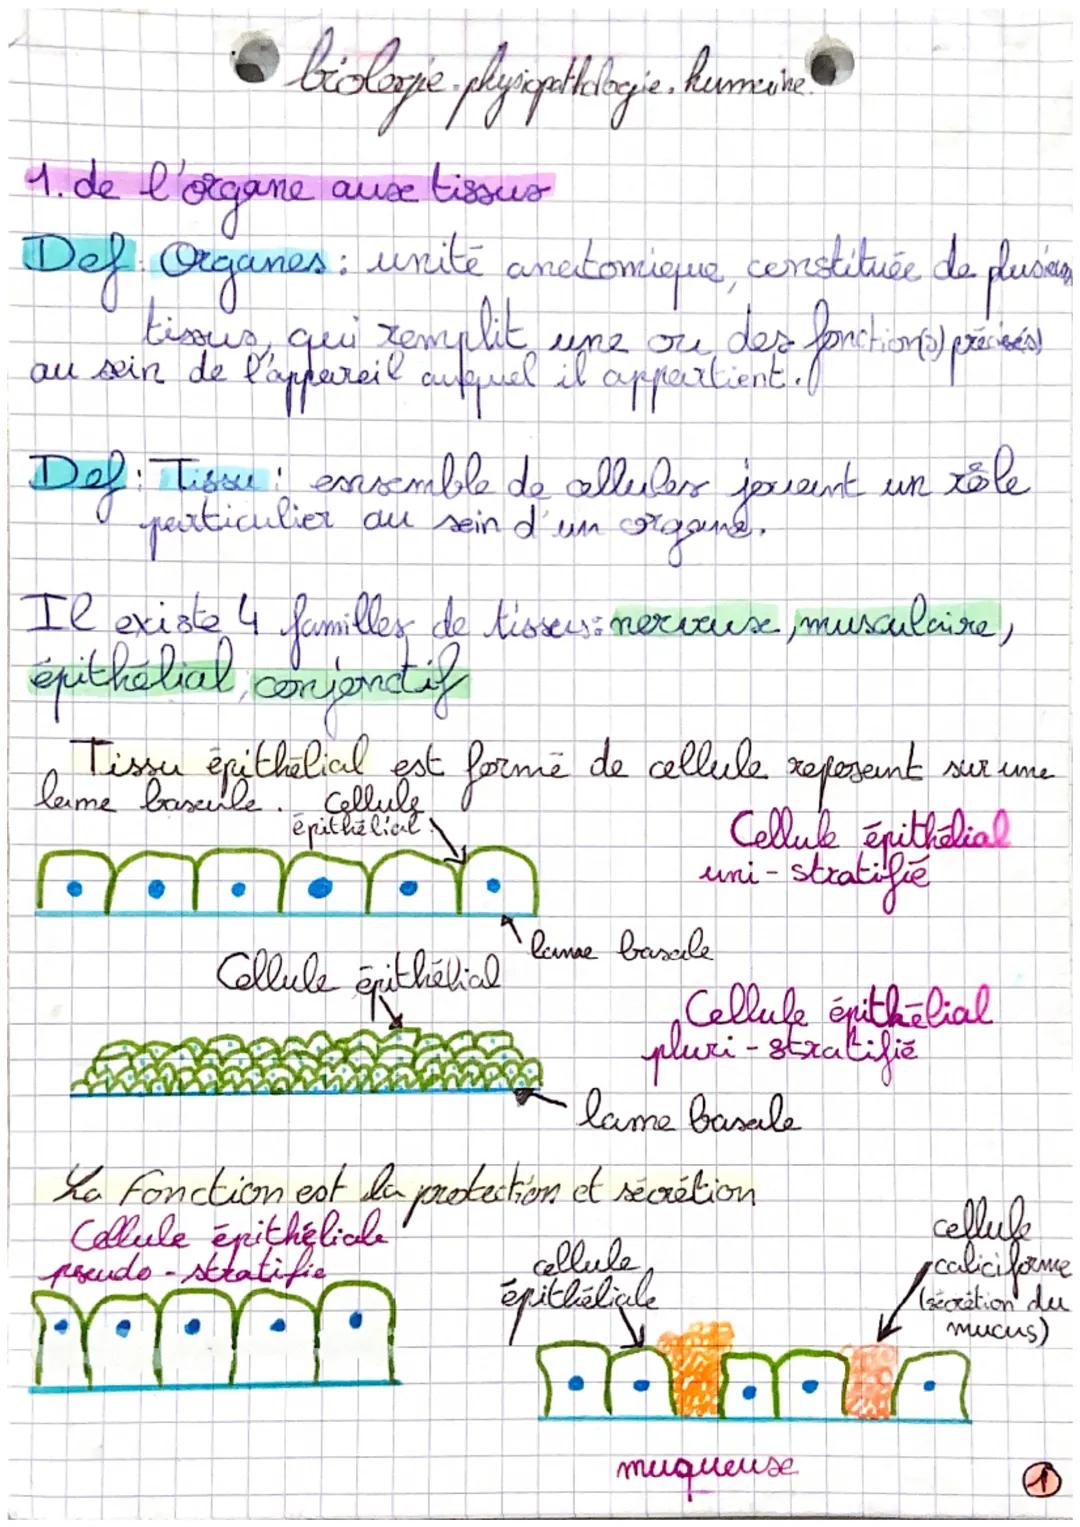 biologie.physiopathologie.humaine.
1. de l'organe aux tissus
Def: Organes: unité anatomique, constituée de plusieurs
tissus, qui remplit une ou des fonction(s) précise(s)
au sein de l'appareil auquel il appartient.
Def: Tissu: ensemble de cellules jouant un rôle
particulier au sein d'un organe.
Il existe 4 familles de tissus: nerveux, musculaire,
épithélial, conjonctif
Tissu épithélial est formé de cellule reposant sur une
lame basale.
cellule
épithélial.
Cellule épithélial
uni-stratifié
lame basale
Cellule épithélial
Cellule épithélial
pluri-stratifié
lame basale
La fonction est la protection et sécrétion
Cellule épithéliale
pseudo-stratifie
cellule
épithéliale
cellule
caliciforme
(sécrétion du
mucus)
muqueuse
1